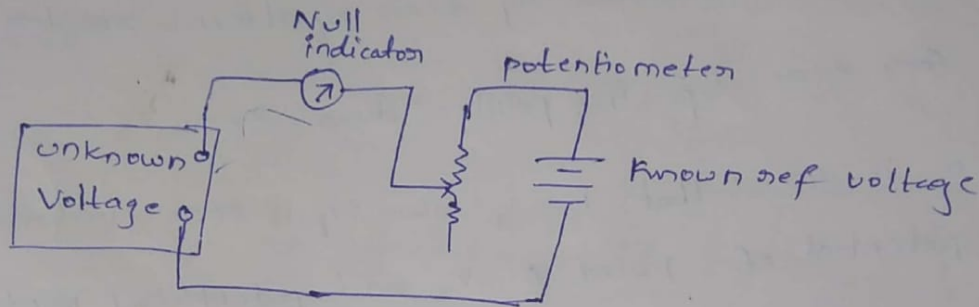 Null
indicator
potentiometer
unknown
Voltage
Known ref voltage